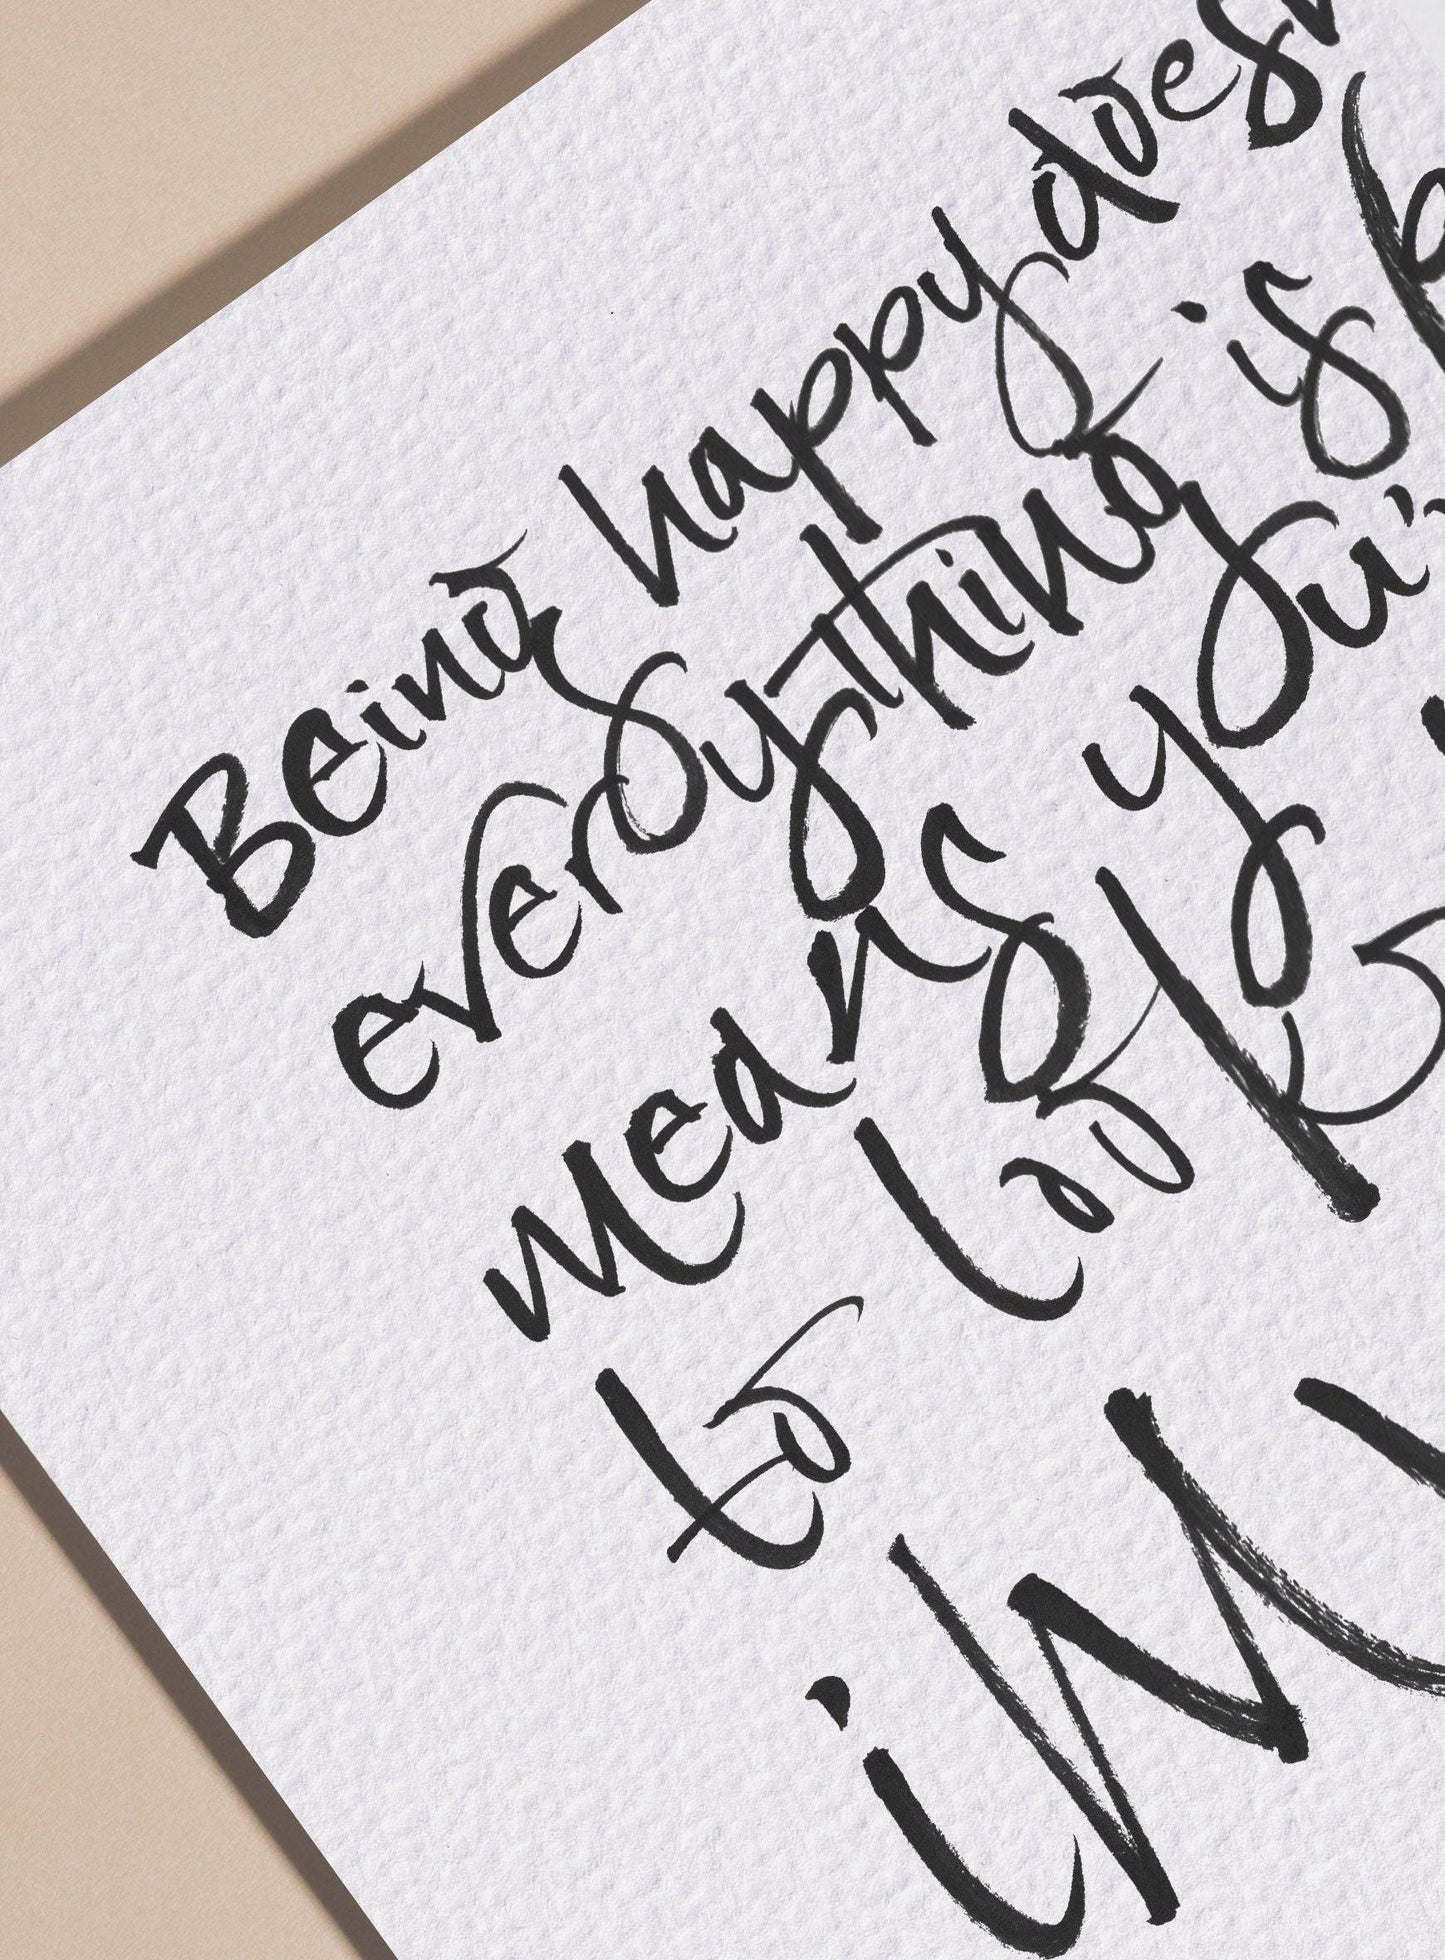 Being happy doesn
everything is p
means you'v
to look
im